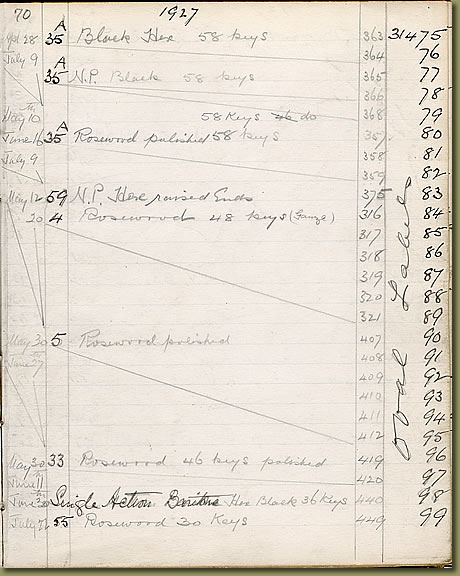 70 1927
Apl 28 35 A Black Hex 58 keys 363 31475
July 9 364 76
35 A N.P. Black 58 keys 365 77
366 78
May 10th 58 Keys 46 do 368 79
June 16 35 A Rosewood polished 58 keys 357 80
July 9 358 81
359 82
May 12 59 N.P. Hexe raised Ends 375 83
20 4 Rosewood 48 keys (Gauze) 316 84
317 85
318 86
319 87
320 88
321 89
May 30 5 Rosewood polished 407 90
June 408 91
409 92
410 93
411 94
412 95
May 30 33 Rosewood 46 keys polished 419 96
June 11 420 97
June Single Action Baritone Hex Black 36 Keys 440 98
July 55 Rosewood 30 Keys 449 99
Oval Labels